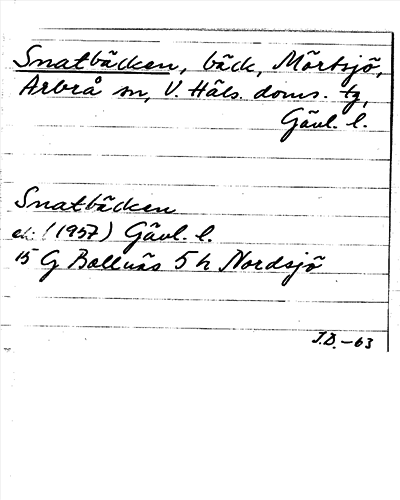 Snatbäcken, bäck, Mörtsjö,
Arbrå sn, V. Häls. doms. tg,
Gävl. l.
Snatbäcken
ek. (1957) Gävl. l.
15 G Bollnäs 5 h Nordsjö
J.D.-63